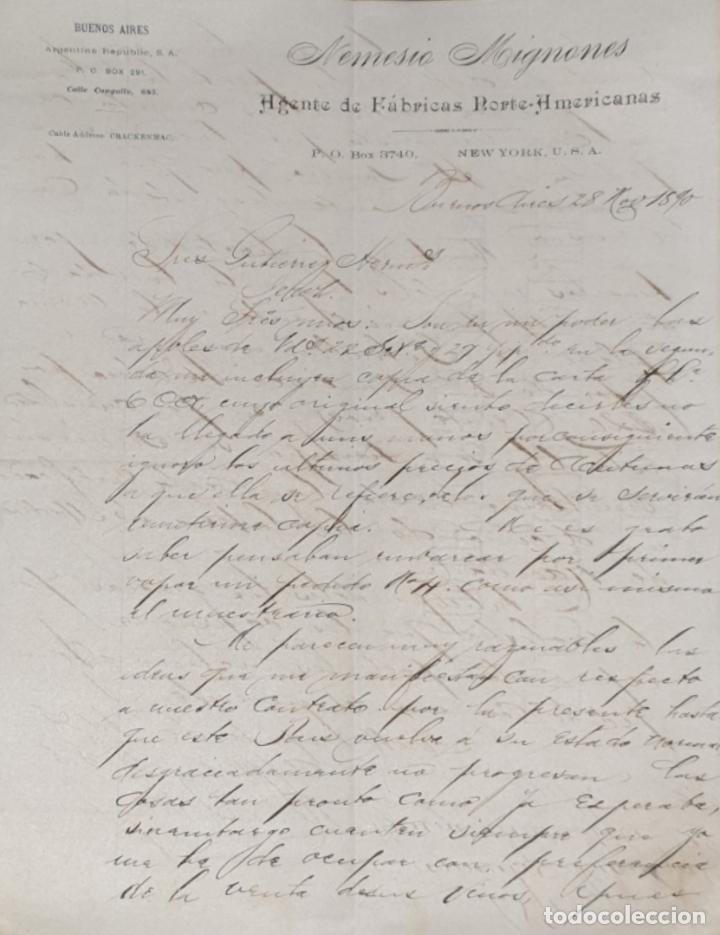 BUENOS AIRES
Argentine Republic, S. A.
P. O. BOX 291.
Calle Cangallo, 685.
Cable Address CRACKENMAC.
Nemesio Mignones
Agente de Fábricas Norte-Americanas
P. O. Box 3740, NEW YORK, U. S. A.
Buenos Aires 28 Nov 1890
Sres Gutierrez Hermos
Muy Sres mios: Son en mi poder las
apbles de Vds 22 y 29 ppdo en la segun
da me incluyen copia de la carta
600, cuyo original siento decirles no
ha llegado a mis manos, por consiguiente
ignoro los ultimos precios de
a que ella se refiere, de los que se serviran
copia. Me es grato
saber pensaban embarcar por primer
vapor mi pedido No 4. como asi mismo
el muestrario.
Me parecen muy razonables las
ideas que me manifiestan con respecto
a nuestro Contrato por la presente hasta
que este Pais vuelva á su Estado normal
desgraciadamente no progresan las
cosas tan pronto como yo esperaba,
sinembargo cuenten siempre que yo
me he de ocupar con preferencia
de la venta de sus vinos, pues
todocoleccion.net